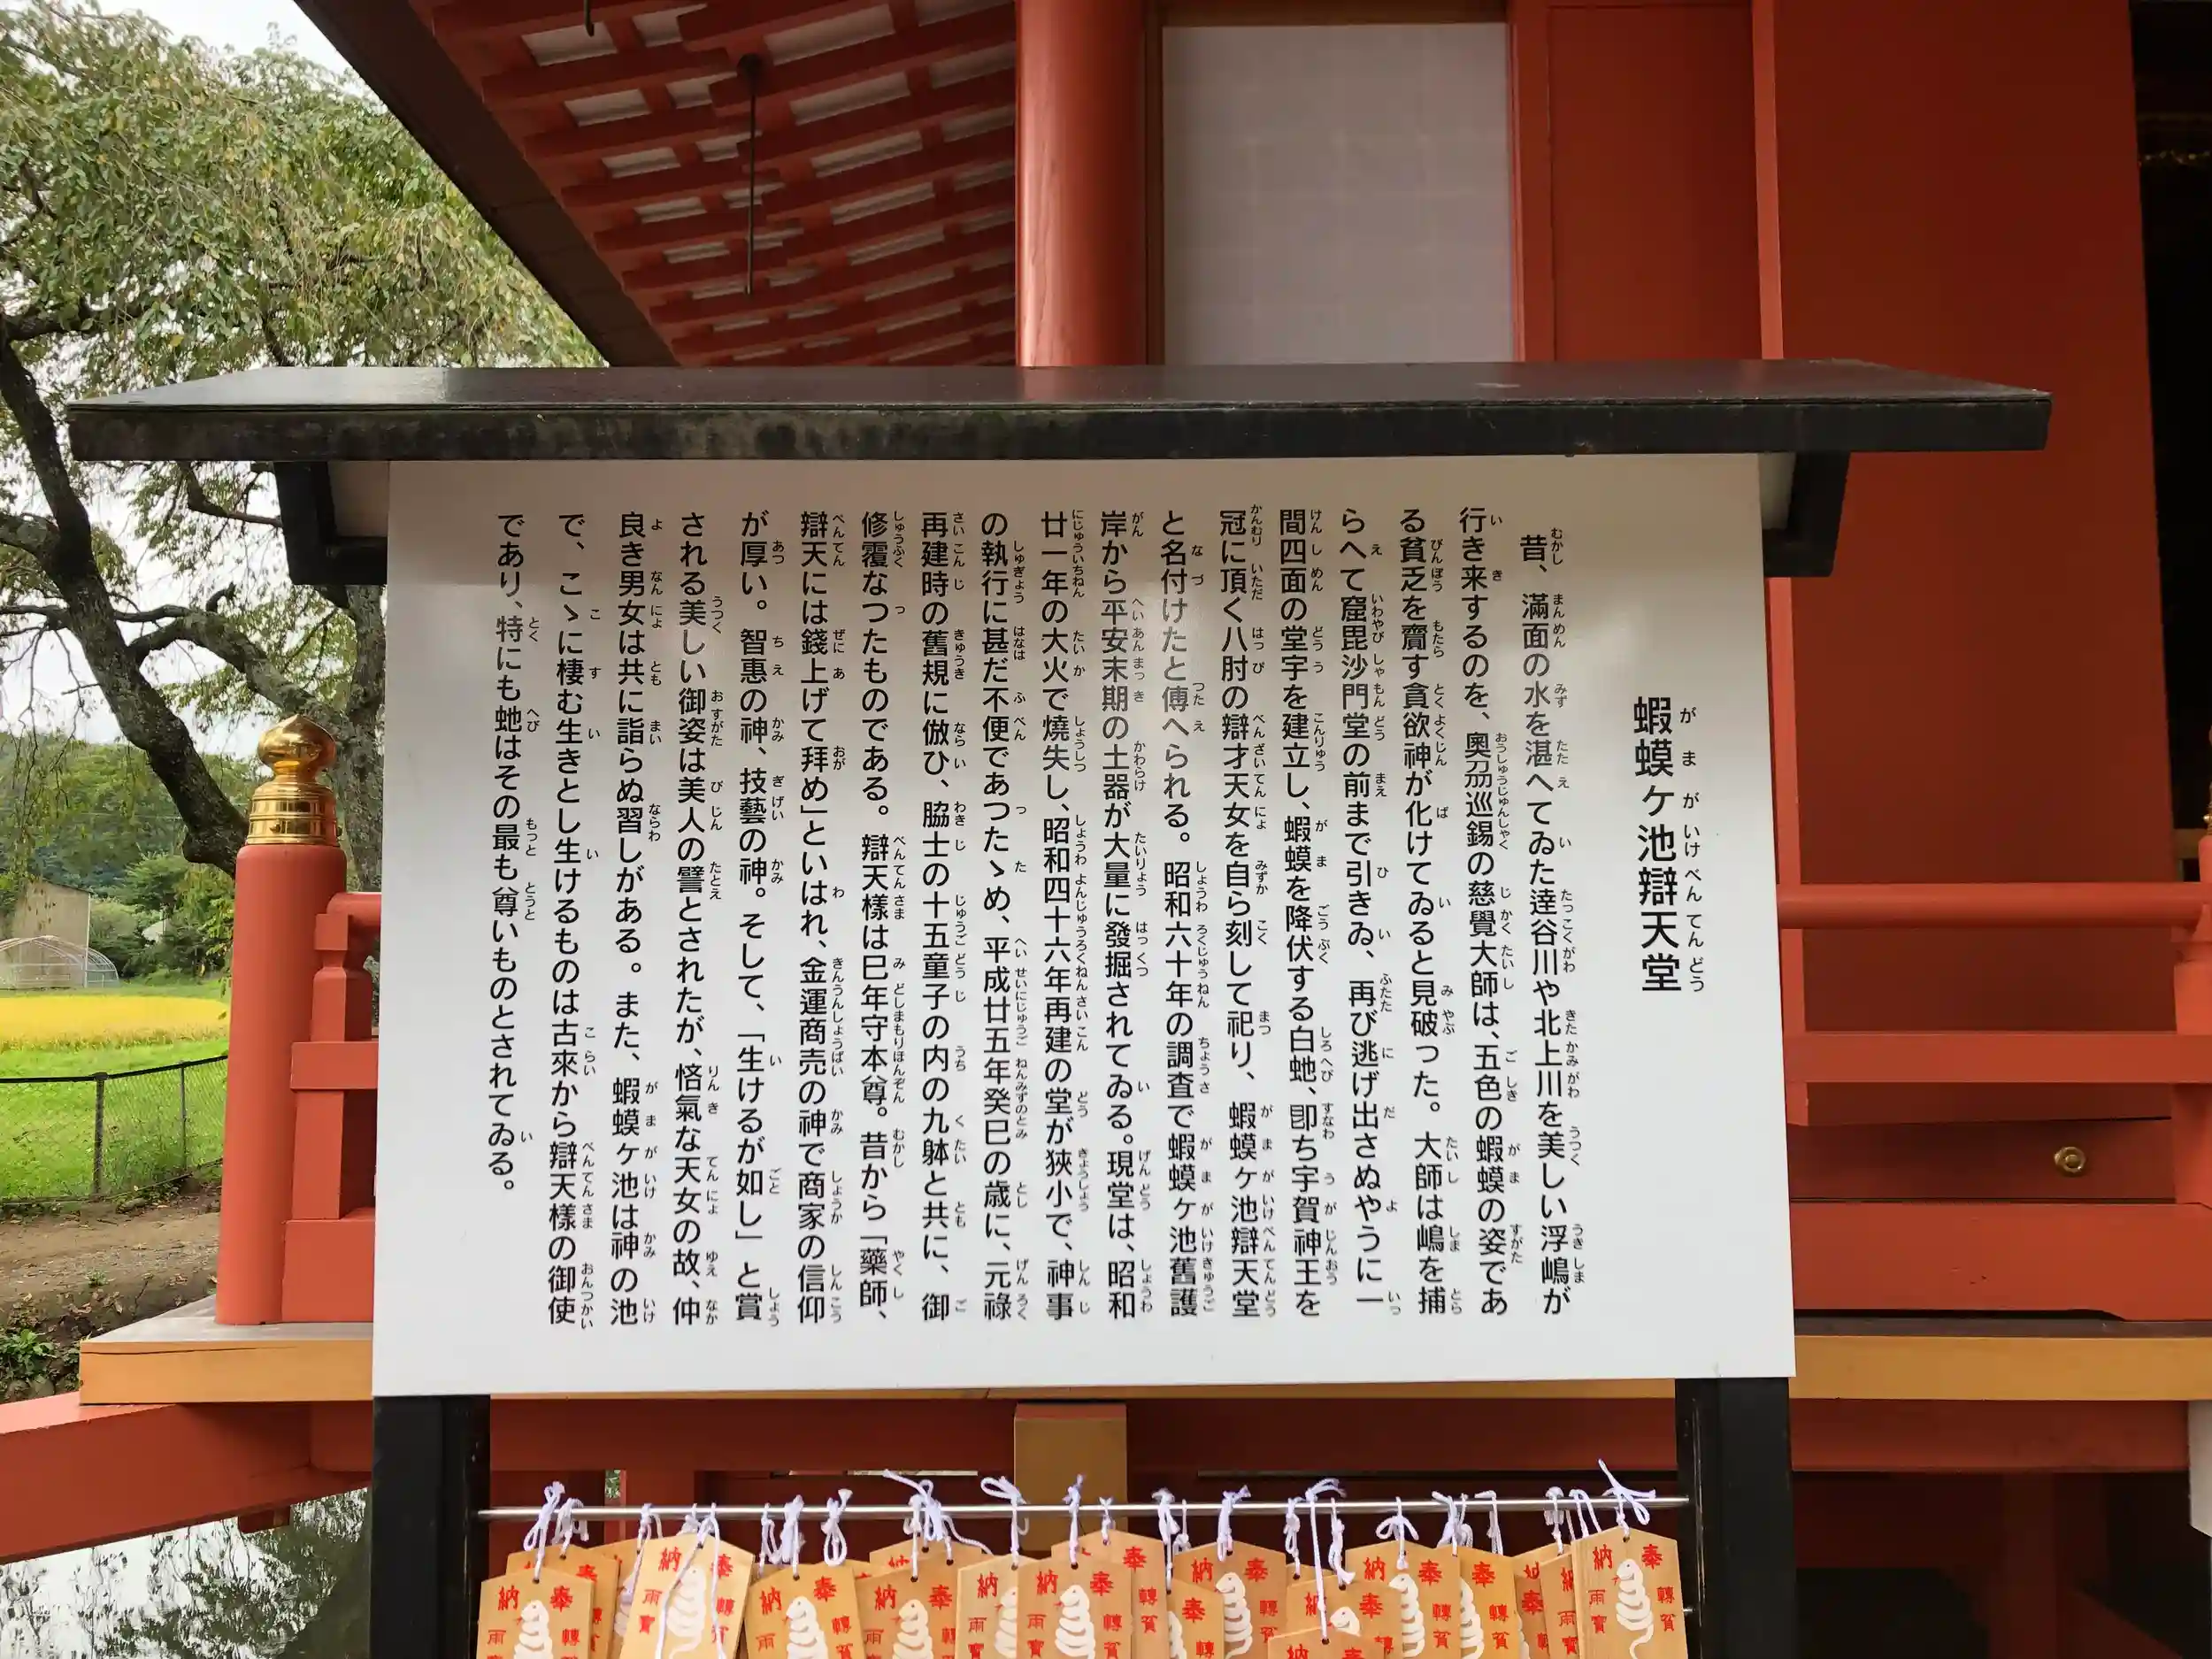 蝦蟆ケ池辯天堂
昔、滿面の水を湛へてゐた達谷川や北上川を美しい浮嶋が
行き来するのを、奧刕巡錫の慈覺大師は、五色の蝦蟆の姿であ
る貧乏を齎す貪欲神が化けてゐると見破った。大師は嶋を捕
らへて窟毘沙門堂の前まで引きゐ、再び逃げ出さぬやうに一
間四面の堂宇を建立し、蝦蟆を降伏する白虵、卽ち宇賀神王を
冠に頂く八肘の辯才天女を自ら刻して祀り、蝦蟆ケ池辯天堂
と名付けたと傳へられる。昭和六十年の調査で蝦蟆ケ池舊護
岸から平安末期の土器が大量に發掘されてゐる。現堂は、昭和
廿一年の大火で燒失し、昭和四十六年再建の堂が狹小で、神事
の執行に甚だ不便であつたゝめ、平成廿五年癸巳の歳に、元祿
再建時の舊規に倣ひ、脇士の十五童子の内の九躰と共に、御
修覆なつたものである。辯天樣は巳年守本尊。昔から「藥師、
辯天には錢上げて拜め」といはれ、金運商売の神で商家の信仰
が厚い。智惠の神、技藝の神。そして、「生けるが如し」と賞
される美しい御姿は美人の譬とされたが、悋氣な天女の故、仲
良き男女は共に詣らぬ習しがある。また、蝦蟆ケ池は神の池
で、こゝに棲む生きとし生けるものは古來から辯天樣の御使
であり、特にも虵はその最も尊いものとされてゐる。
奉納
轉貧
雨寶